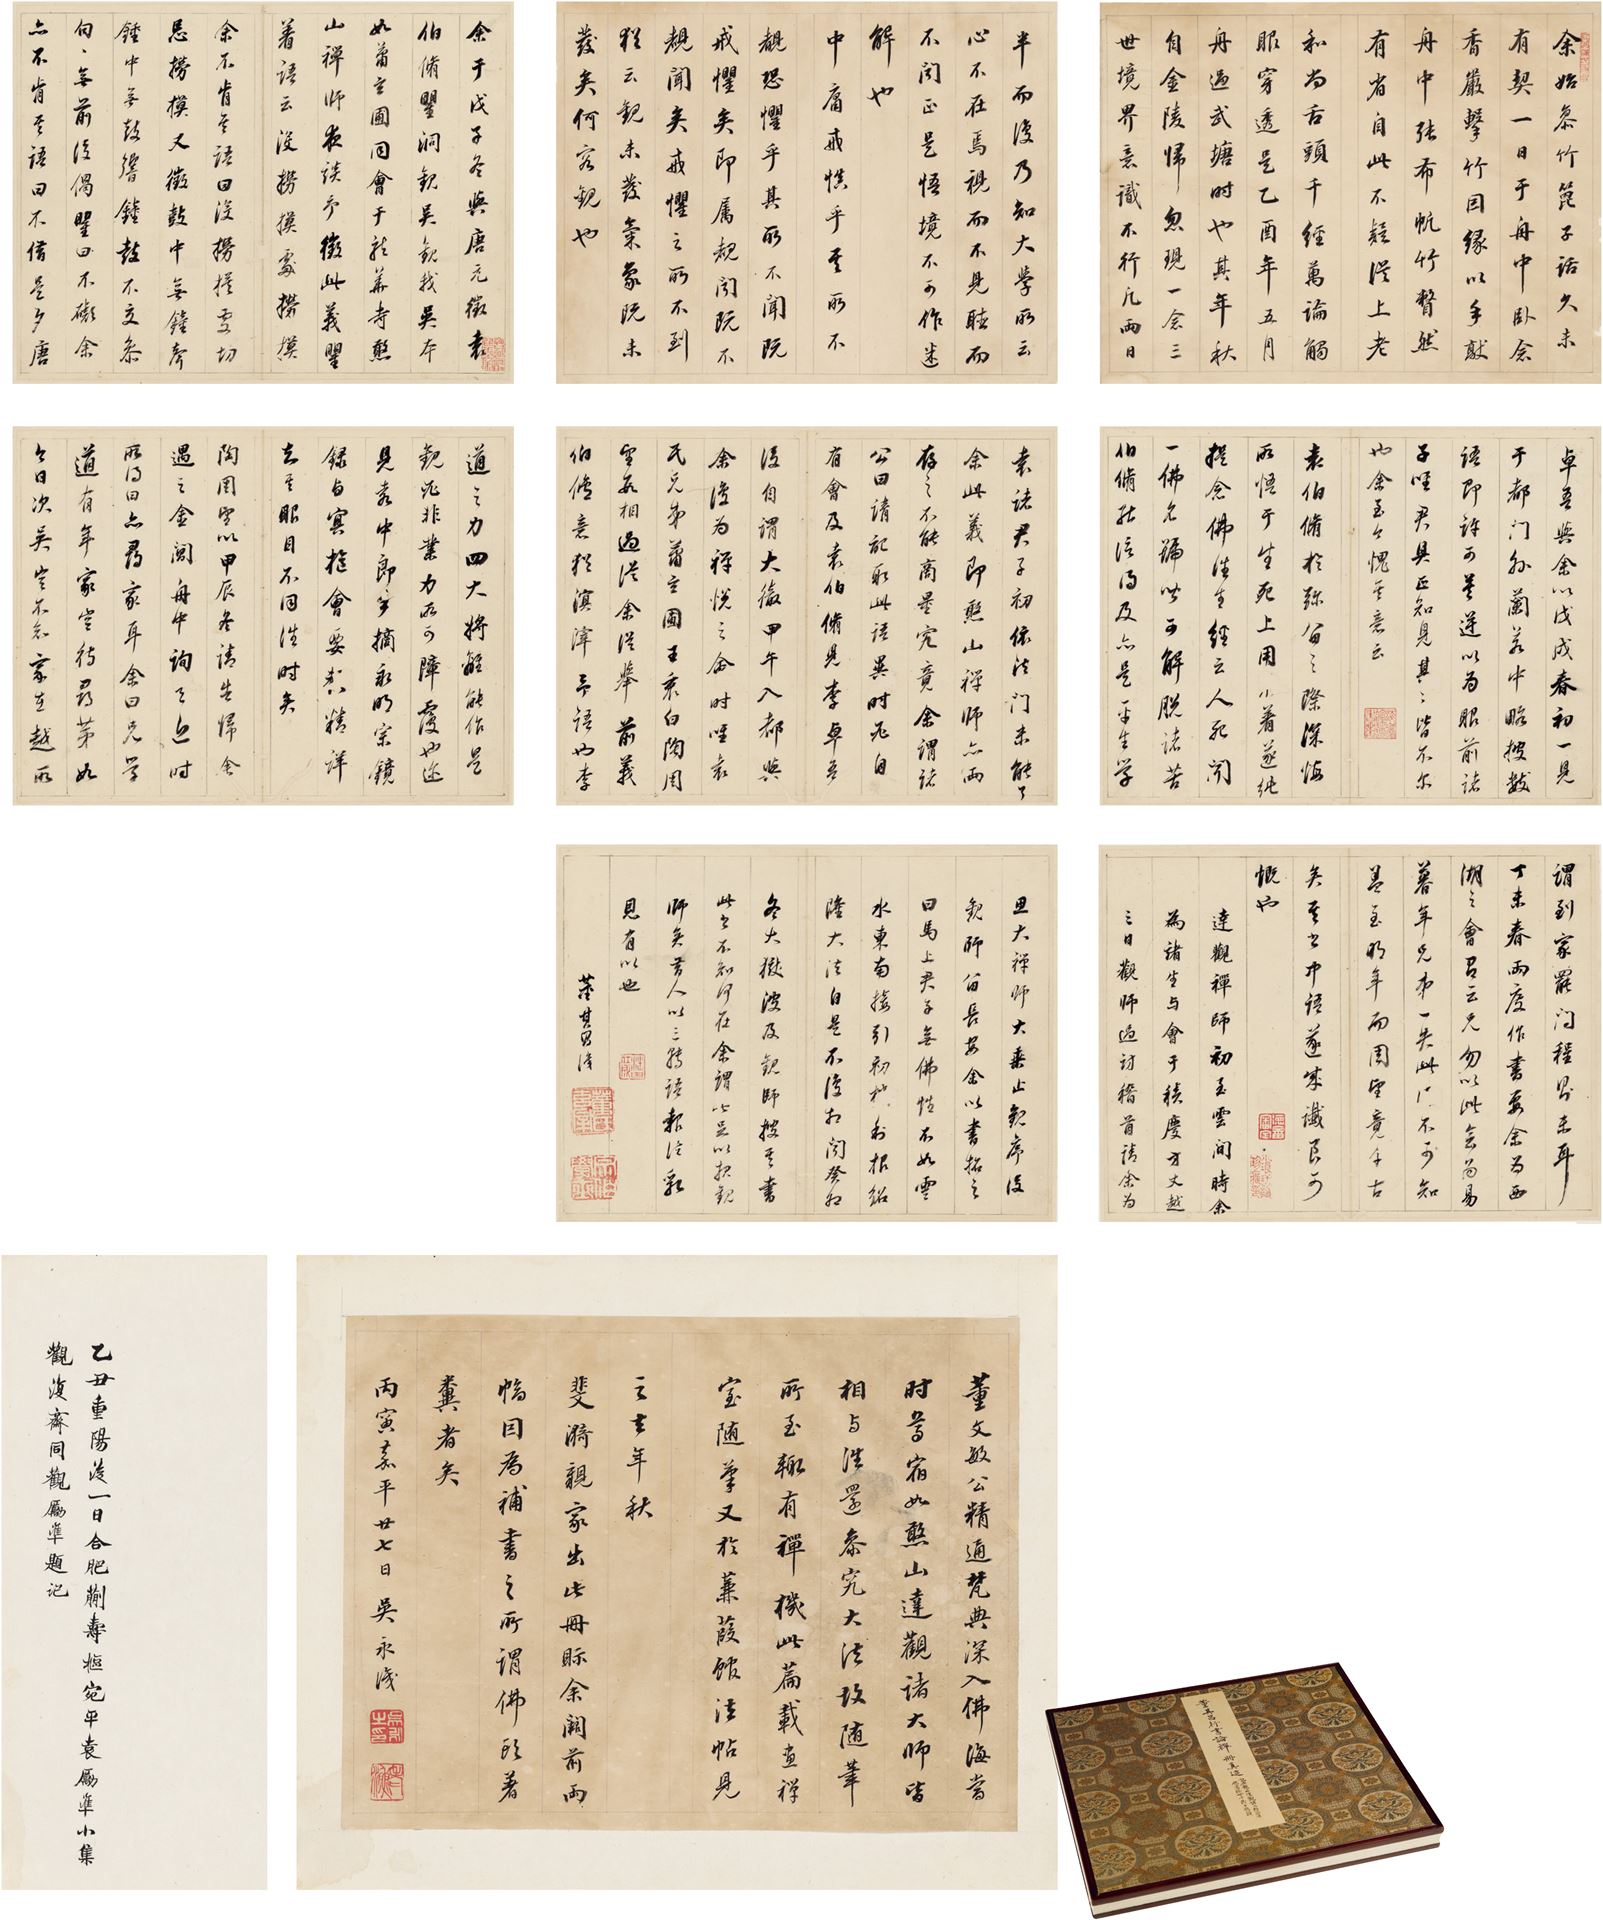 余始參竹篦子話久未
有契一日于舟中臥念
香嚴擊竹因緣以手敲
舟中張布帆竹瞥然
有省自此不疑從上老
和尚舌頭千經萬論觸
眼穿透是乙酉年五月
舟過武塘時也其年秋
自金陵歸忽現一念三
世境界意識不行凡兩日
半而復乃知大學所云
心不在焉視而不見聽而
不聞正是悟境不可作迷
解也
中庸戒慎乎其所不
覩恐懼乎其所不聞既
戒懼矣即屬覩聞既不
覩聞矣戒懼之所不到
猶云觀未發氣象既未
發矣何容觀也
余于戊子冬與唐元徵袁
伯脩瞿洞觀吳觀我吳本
如蕭玄圃同會于龍華寺憨
山禪師夜談予徵此義瞿
著語云沒撈摸處撈摸
余不肯其語曰沒撈摸處切
忌撈摸又徵鼓中無鐘聲
鐘中無鼓響鐘鼓不交參
句〻無前後偈瞿曰不礙余
亦不肯其語曰不借是夕唐
袁諸君子初依法門未能了
余此義即憨山禪師亦兩
存之不能商量究竟余謂諸
公曰請記取此語異時必自
有會及袁伯脩見李卓吾
後自謂大徹甲午入都與
余復為禪悅之會時唯袁
氏兄弟蕭玄圃王衷白陶周
望數相過從余從舉前義
伯脩意猶溟涬余語也李
卓吾與余以戊戌春初一見
于都門外蘭若中略披數
語即許可莫逆以為眼前諸
子唯君具正知見某〻皆不尔
也余至今愧其意云
袁伯脩於弥留之際深悔
所悟于生死上用不著遂純
提念佛往生經云人死聞
一佛名號皆可解脫諸苦
伯脩能信得及亦是平生学
道之力四大將離能作是
觀必非業力所可障覆也迩
見袁中郎手摘永明宗鏡
錄与冥樞會要較精詳
知其眼目不同往时矣
陶周望以甲辰冬請告歸余
遇之金閶舟中詢其近时
所得曰亦尋家耳余曰兄學
道有年家豈待尋第如
今日次吳豈不知家在越所
謂到家罷問程則未耳
丁未春兩度作書要余為西
湖之會有云兄勿以此會為易
暮年兄弟一失此便不可知
蓋至明年而周望竟千古
矣其書中語遂成讖良可
慨也
達觀禪師初至雲間時余
為諸生与會于積慶方丈越
三日觀师過訪稽首請余为
思大禪师大乘止觀序後
觀师留長安余以書招之
曰馬上君子無佛性不如雲
水東南接引初機利根紹
隆大法自是不復相聞癸卯
冬大獄波及觀师搜其書
此書不知何在余謂此足以報觀
师矣昔人以三轉語報法乳
恩有以也
董其昌識
董文敏公精通梵典深入佛海當
时耆宿如憨山達觀諸大师皆
相与往還參究大法故随筆
所至輒有禪機此篇載畫禪
室随筆又於蒹葭館法帖見
之去年秋
斐漪親家出此冊眎余闕前兩
幅因為補書之所謂佛頭著
糞者矣
丙寅嘉平廿七日吳永識
乙丑重陽後一日合肥蒯壽樞宛平袁勵準小集
觀復齋同觀勵準題記
董其昌行書論禪冊真迹